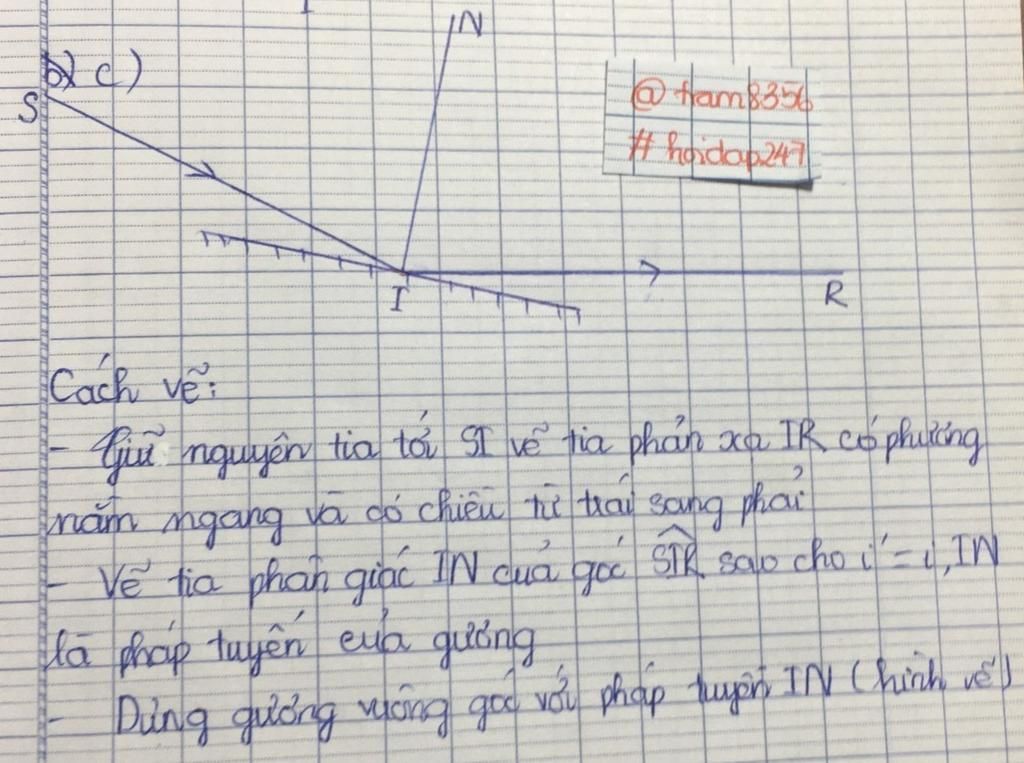 N
c)
S
@ tram8356
# hoidap247
I
R
Cách vẽ:
- Giữ nguyên tia tới SI vẽ tia phản xạ IR có phương
nằm ngang và có chiều từ trái sang phải
- Vẽ tia phân giác IN của góc SIR sao cho i' = i, IN
là pháp tuyến của gương
- Dựng gương vuông góc với pháp tuyến IN (hình vẽ)